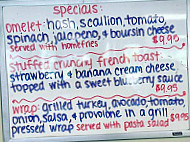 specials:
omelet: hash, scallion, tomato,
spinach, jalapeno, & boursin cheese
served with homefries $9.95
stuffed crunchy french toast
strawberry & banana cream cheese
topped with a sweet blueberry sauce
$9.95
wrap: grilled turkey, avocado, tomato
onion, salsa, & provolone in a grill
pressed wrap served with pasta salad $9.95